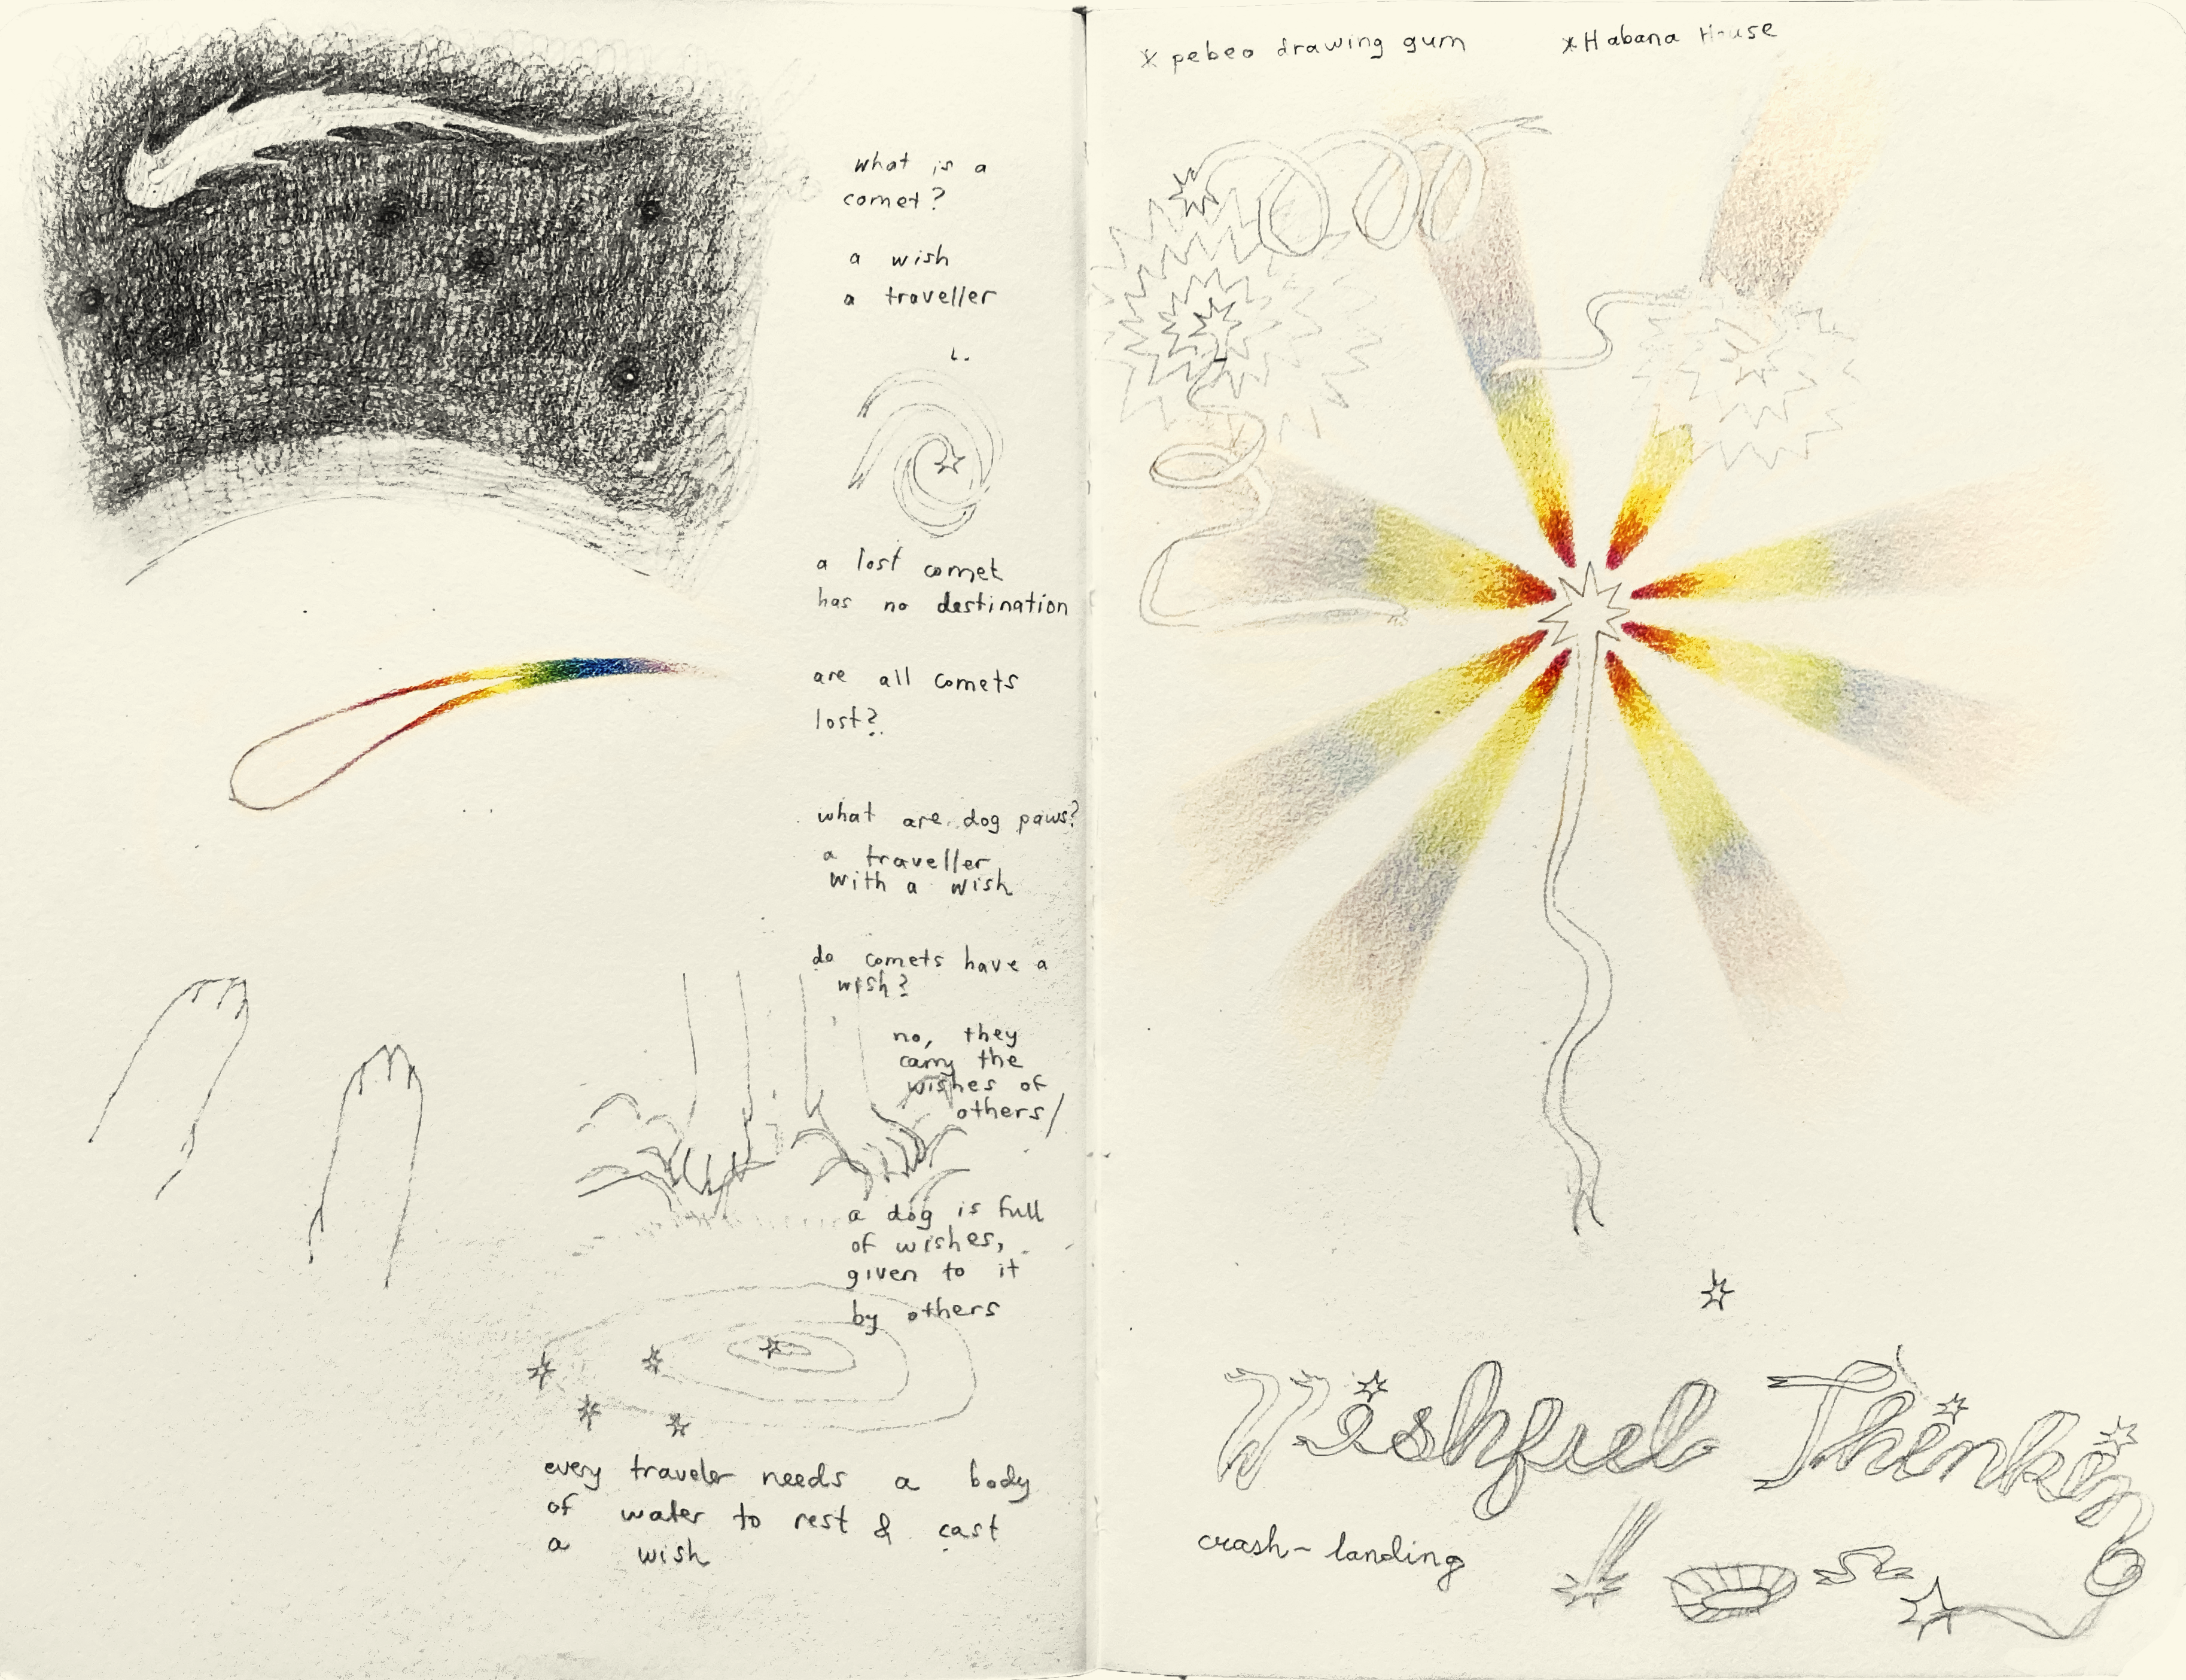 what is a
comet?
a wish
a traveller
a lost comet
has no destination
are all comets
lost?
what are dog paws?
a traveller
with a wish
do comets have a
wish?
no, they
carry the
wishes of
others/
a dog is full
of wishes,
given to it
by others
every traveler needs a body
of water to rest & cast
a wish
* pebeo drawing gum
* Habana House
Wishful Thinking
crash-landing